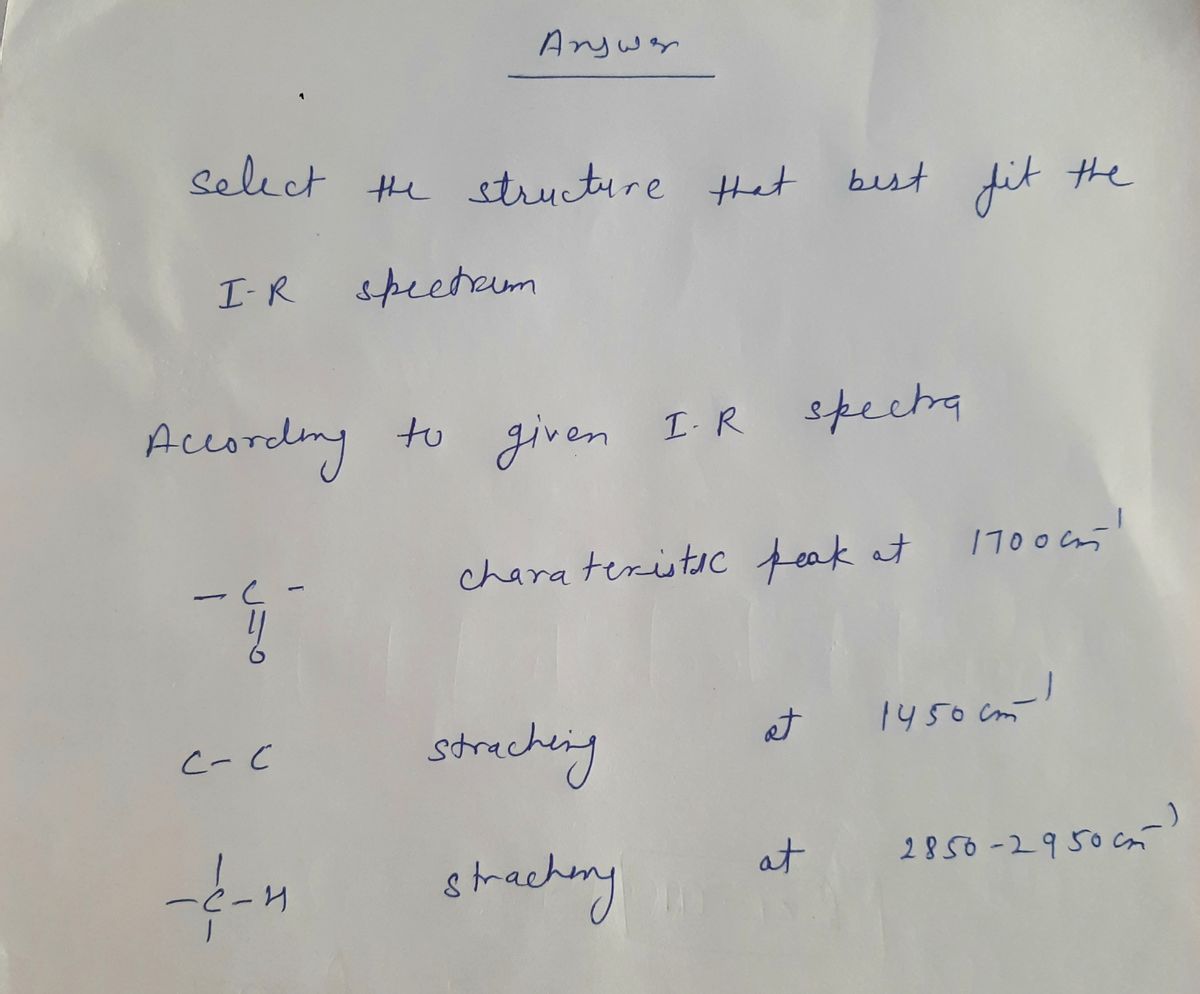 Answer
select the structure that best fit the
I-R spectrum
According to given I.R spectra
-C- charateristic peak at 1700 cm⁻¹
||
O
C-C straching at 1450 cm⁻¹
|
-C-H straching at 2850-2950 cm⁻¹
|